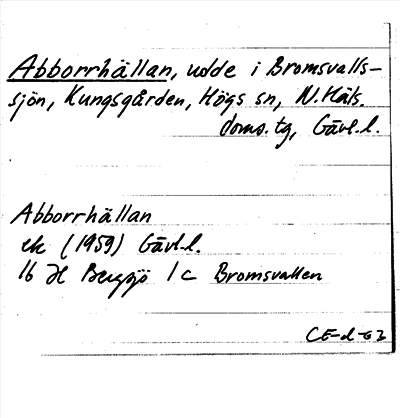 Abborrhällan, udde i Bromsvalls-
sjön, Kungsgården, Högs sn, N. Häls.
doms. tg, Gävl.l.
Abborrhällan
ek (1959) Gävl.l.
16 H Bergsjö 1 c Bromsvallen
CE-d-63